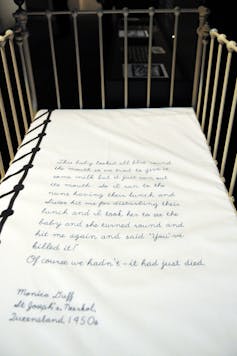 This baby looked all blue round
its mouth so we tried to give it
some milk but it just ran out
its mouth. So I ran to the
nuns having their lunch and
Sister hit me for disturbing their
lunch and I took her to see the
baby and she turned round and
hit me again and said "You've
killed it!"
Of course we hadn't – it had just died.
Monica Duff
St Joseph's, Neerkol,
Queensland, 1950s